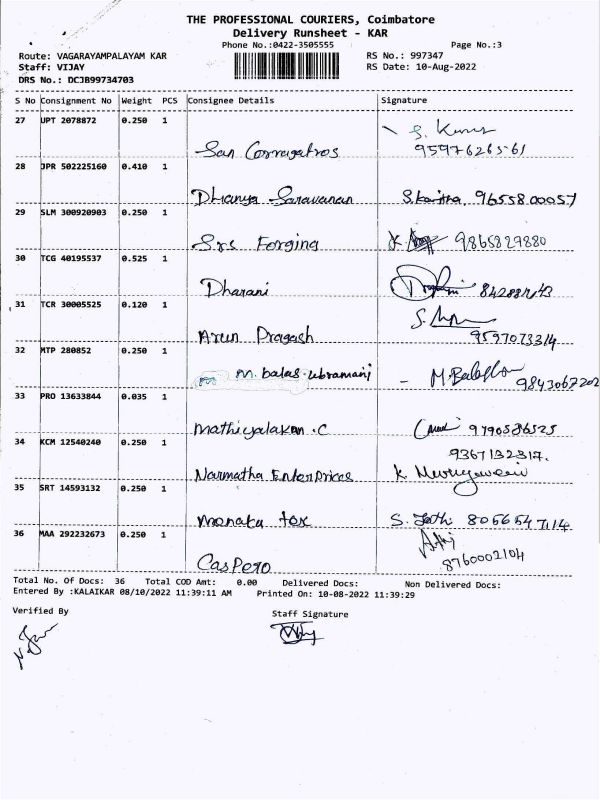 THE PROFESSIONAL COURIERS, Coimbatore
Delivery Runsheet - KAR
Phone No.:0422-3505555 Page No.:3
Route: VAGARAYAMPALAYAM KAR RS No.: 997347
Staff: VIJAY RS Date: 10-Aug-2022
DRS No.: DCJB99734703
S No Consignment No Weight PCS Consignee Details Signature
27 UPT 2078872 0.250 1
S. Kumar
San Corragatros 9597626561
28 JPR 502225160 0.410 1
Dhanya Saravanan S.Kavitha, 9655800057
29 SLM 300920903 0.250 1
Srs Forging 9865829880
30 TCG 40195537 0.525 1
Dharani
31 TCR 30005525 0.120 1
Arun Pragash 9597073314
32 MTP 280852 0.250 1
m.balas-ubramani - 9843067202
33 PRO 13633844 0.035 1
Mathiyalakan.C 9790586525
34 KCM 12540240 0.250 1 9367132317.
Narmatha Enterprices K
35 SRT 14593132 0.250 1
Menaka tex S. 8056547114
36 MAA 292232673 0.250 1
Caspero 8760002104
Total No. Of Docs: 36 Total COD Amt: 0.00 Delivered Docs: Non Delivered Docs:
Entered By :KALAIKAR 08/10/2022 11:39:11 AM Printed On: 10-08-2022 11:39:29
Verified By Staff Signature